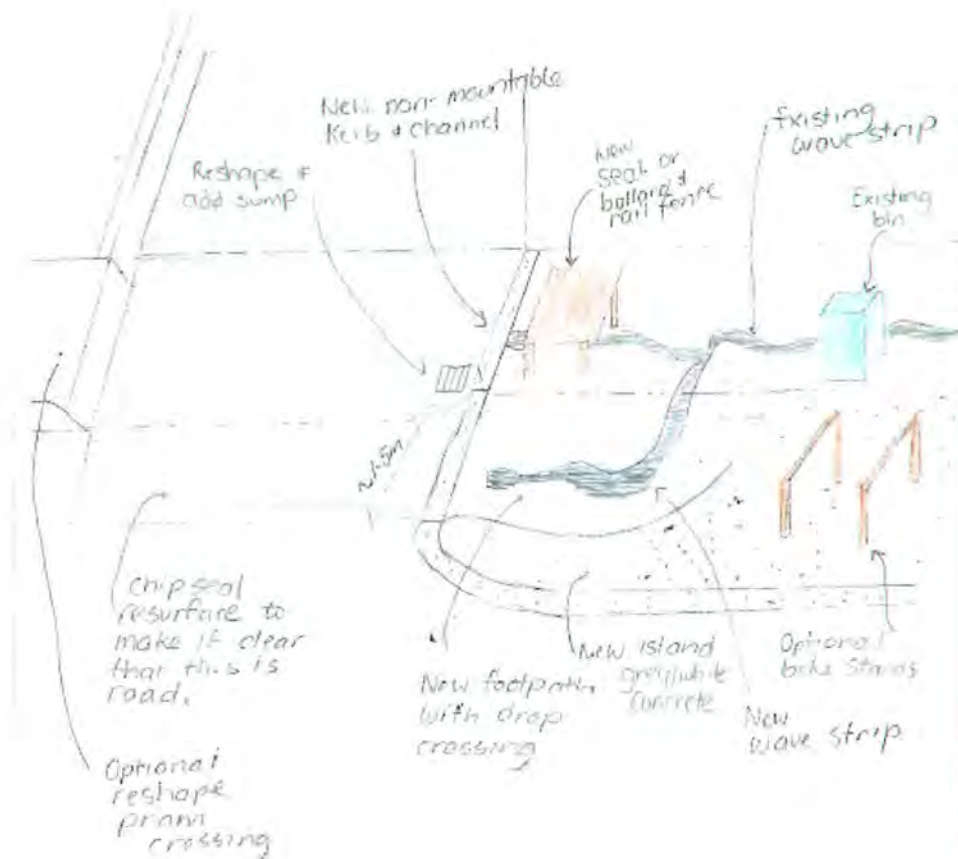 New non-mountable
Kerb & channel
Reshape &
add sump
New
seat or
bollard &
rail fence
Existing
wave strip
Existing
bin
~1.5m
chip seal
resurface to
make it clear
that this is
road.
Optional
reshape
pram
crossing
New footpath
with drop
crossing
New island
grey/white
concrete
New
wave strip
Optional
bike stands